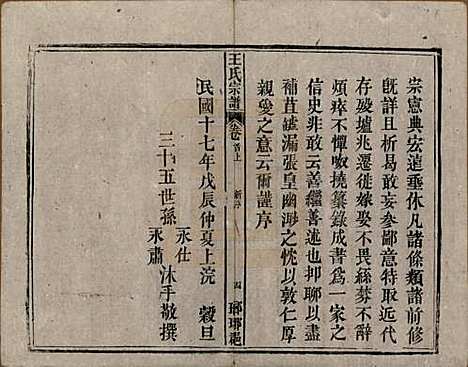 宗憲典宏遠垂休凡諸條類諸前修
旣詳且析曷敢妄參鄙意特取近代
存歿壚兆遷徙嫁娶不畏絲棼不辭
煩瘁不憚喉撓纂錄成書爲一家之
信史非敢云善繼善述也抑聊以盡
補苴罅漏張皇幽渺之忱以敦仁厚
親愛之意云爾謹序
民國十七年戊辰仲夏上浣 穀旦
三十五世孫
永仕
永肅
沐手敬撰
王氏宗譜
卷首上
新序
四